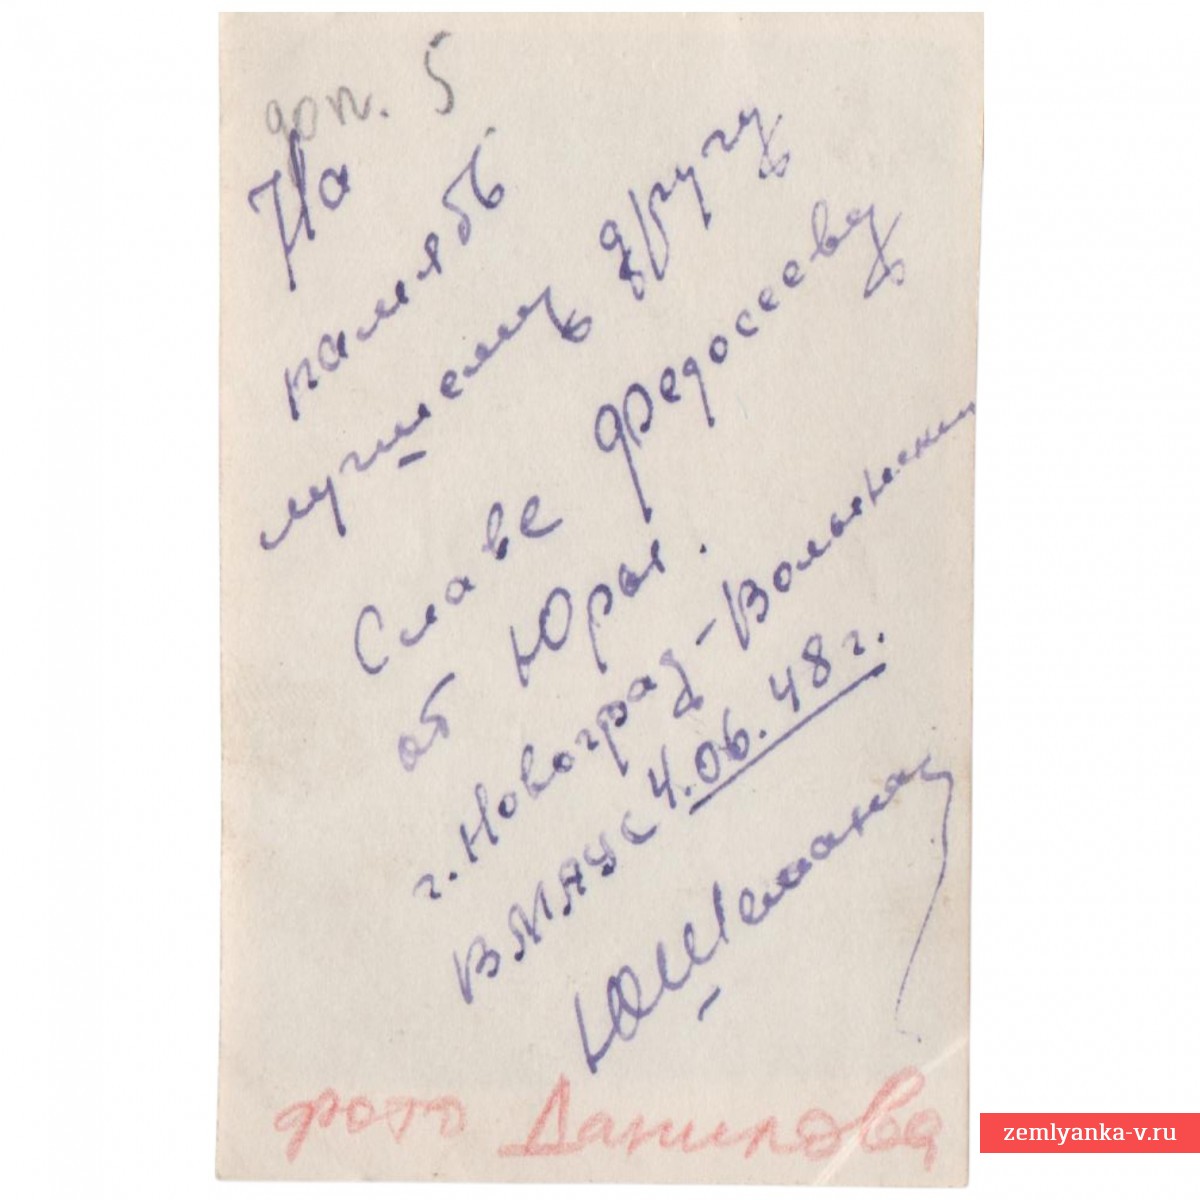 доп. 5
На
память
лучшему другу
Славе Федосееву
от Юры.
г. Новоград-Волынский
4.06.48 г.
фото Данилова
zemlyanka-v.ru